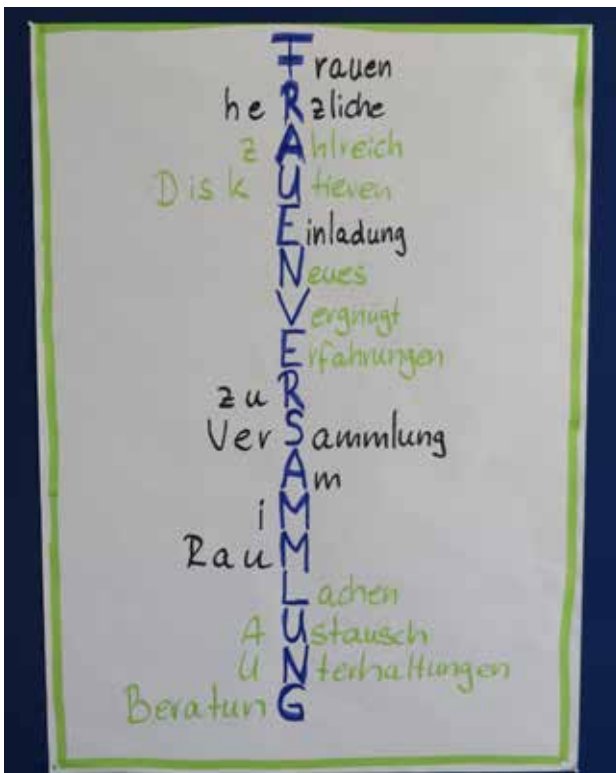 Frauen
heRzliche
zAhlreich
DiskUtieren
Einladung
Neues
Vergnügt
Erfahrungen
zuR
VerSammlung
Am
iM
RauM
Lachen
AUstausch
UNterhaltungen
BeratunG